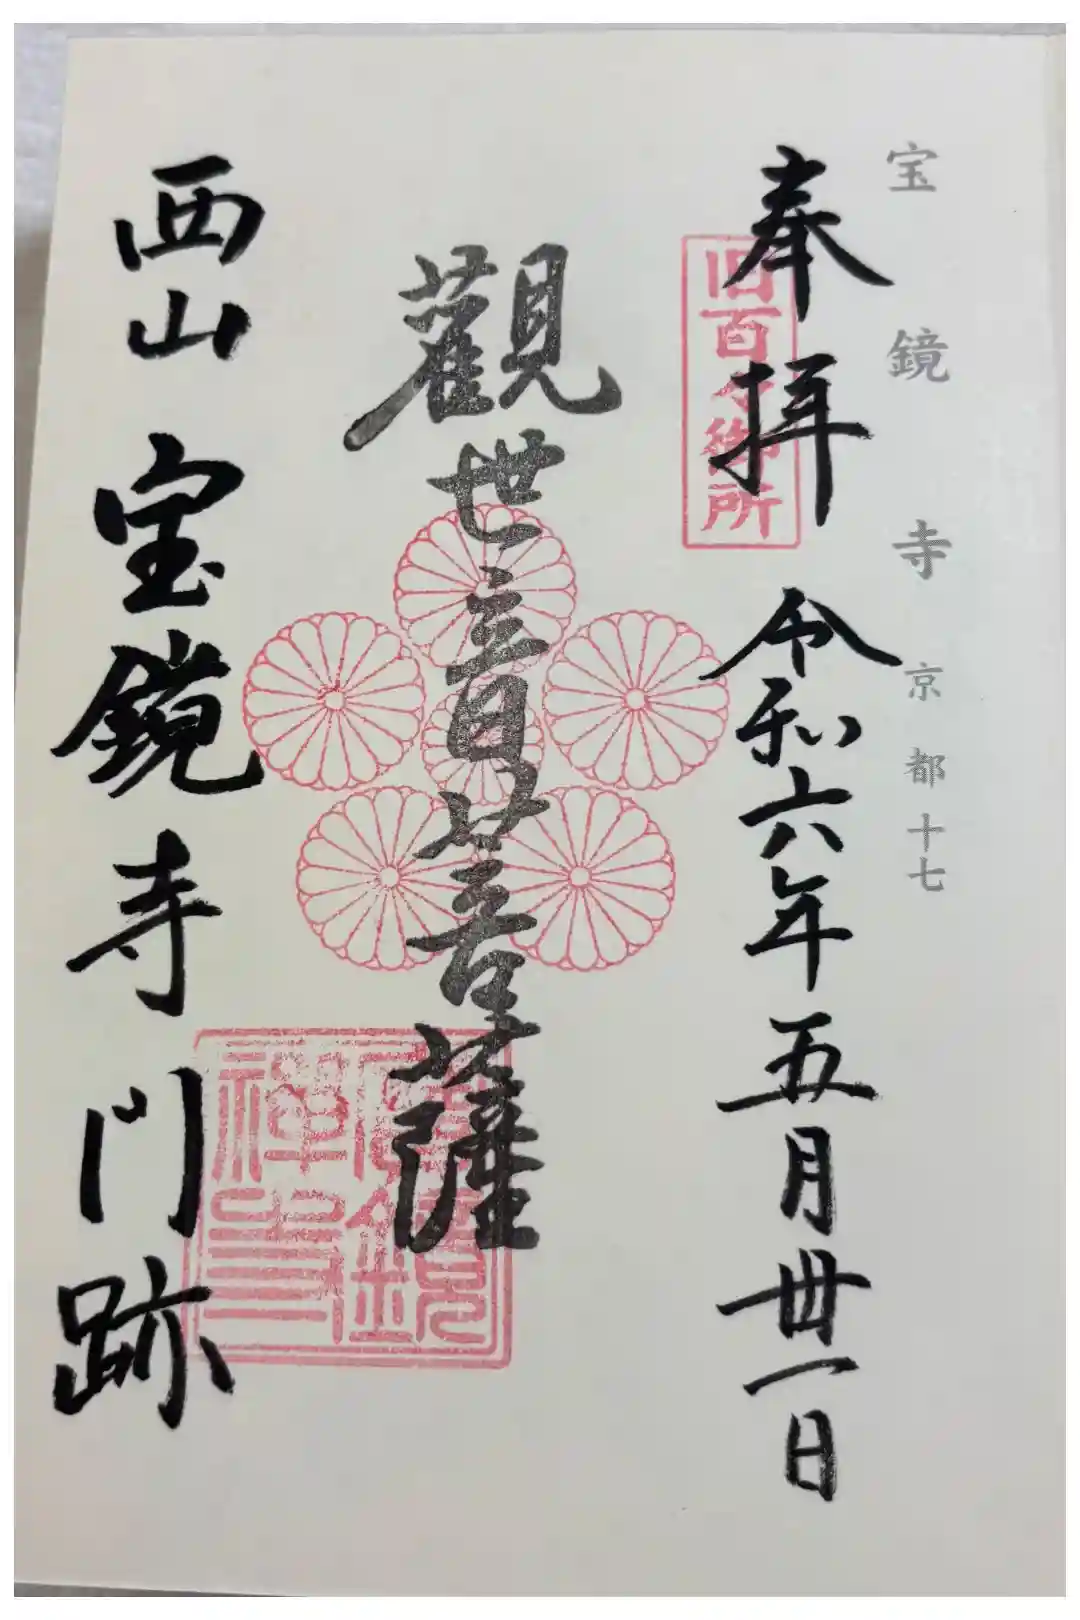 宝鏡寺 京都十七
奉拝 令和六年五月卅一日
旧百々御所
觀世音菩薩
西山 宝鏡寺門跡